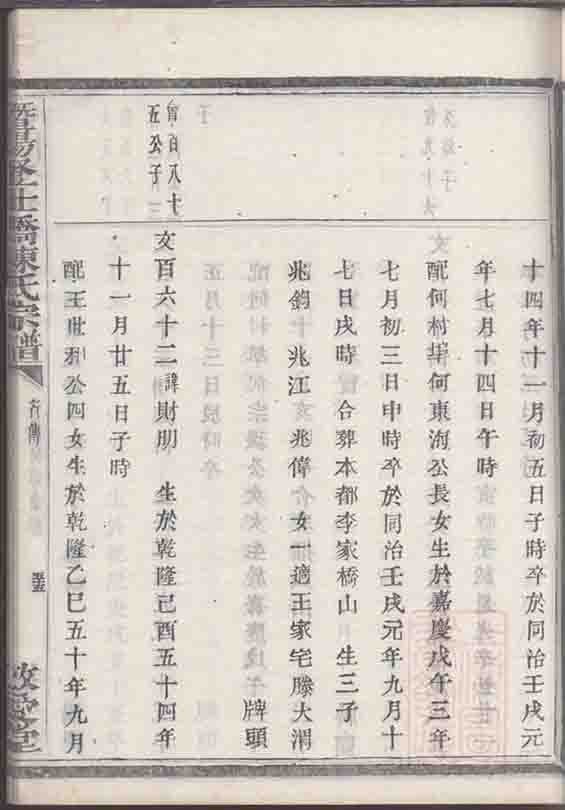 十四年十一月初五日子時卒於同治壬戌元
年七月十四日午時
配何村󠄀何東海公長女生於嘉慶戊午三年
七月初三日申時卒於同治壬戌元年九月十
七日戌時合葬本都李家橋山 生三子
兆鈞 兆江 兆偉 女一適王家宅滕大渭
牌頭
曾百八十
五公子
文百六十二諱財朋 生於乾隆己酉五十四年
十一月廿五日子時
配王世 公四女生於乾隆乙巳五十年九月
暨陽 社橋陳氏宗譜
堂